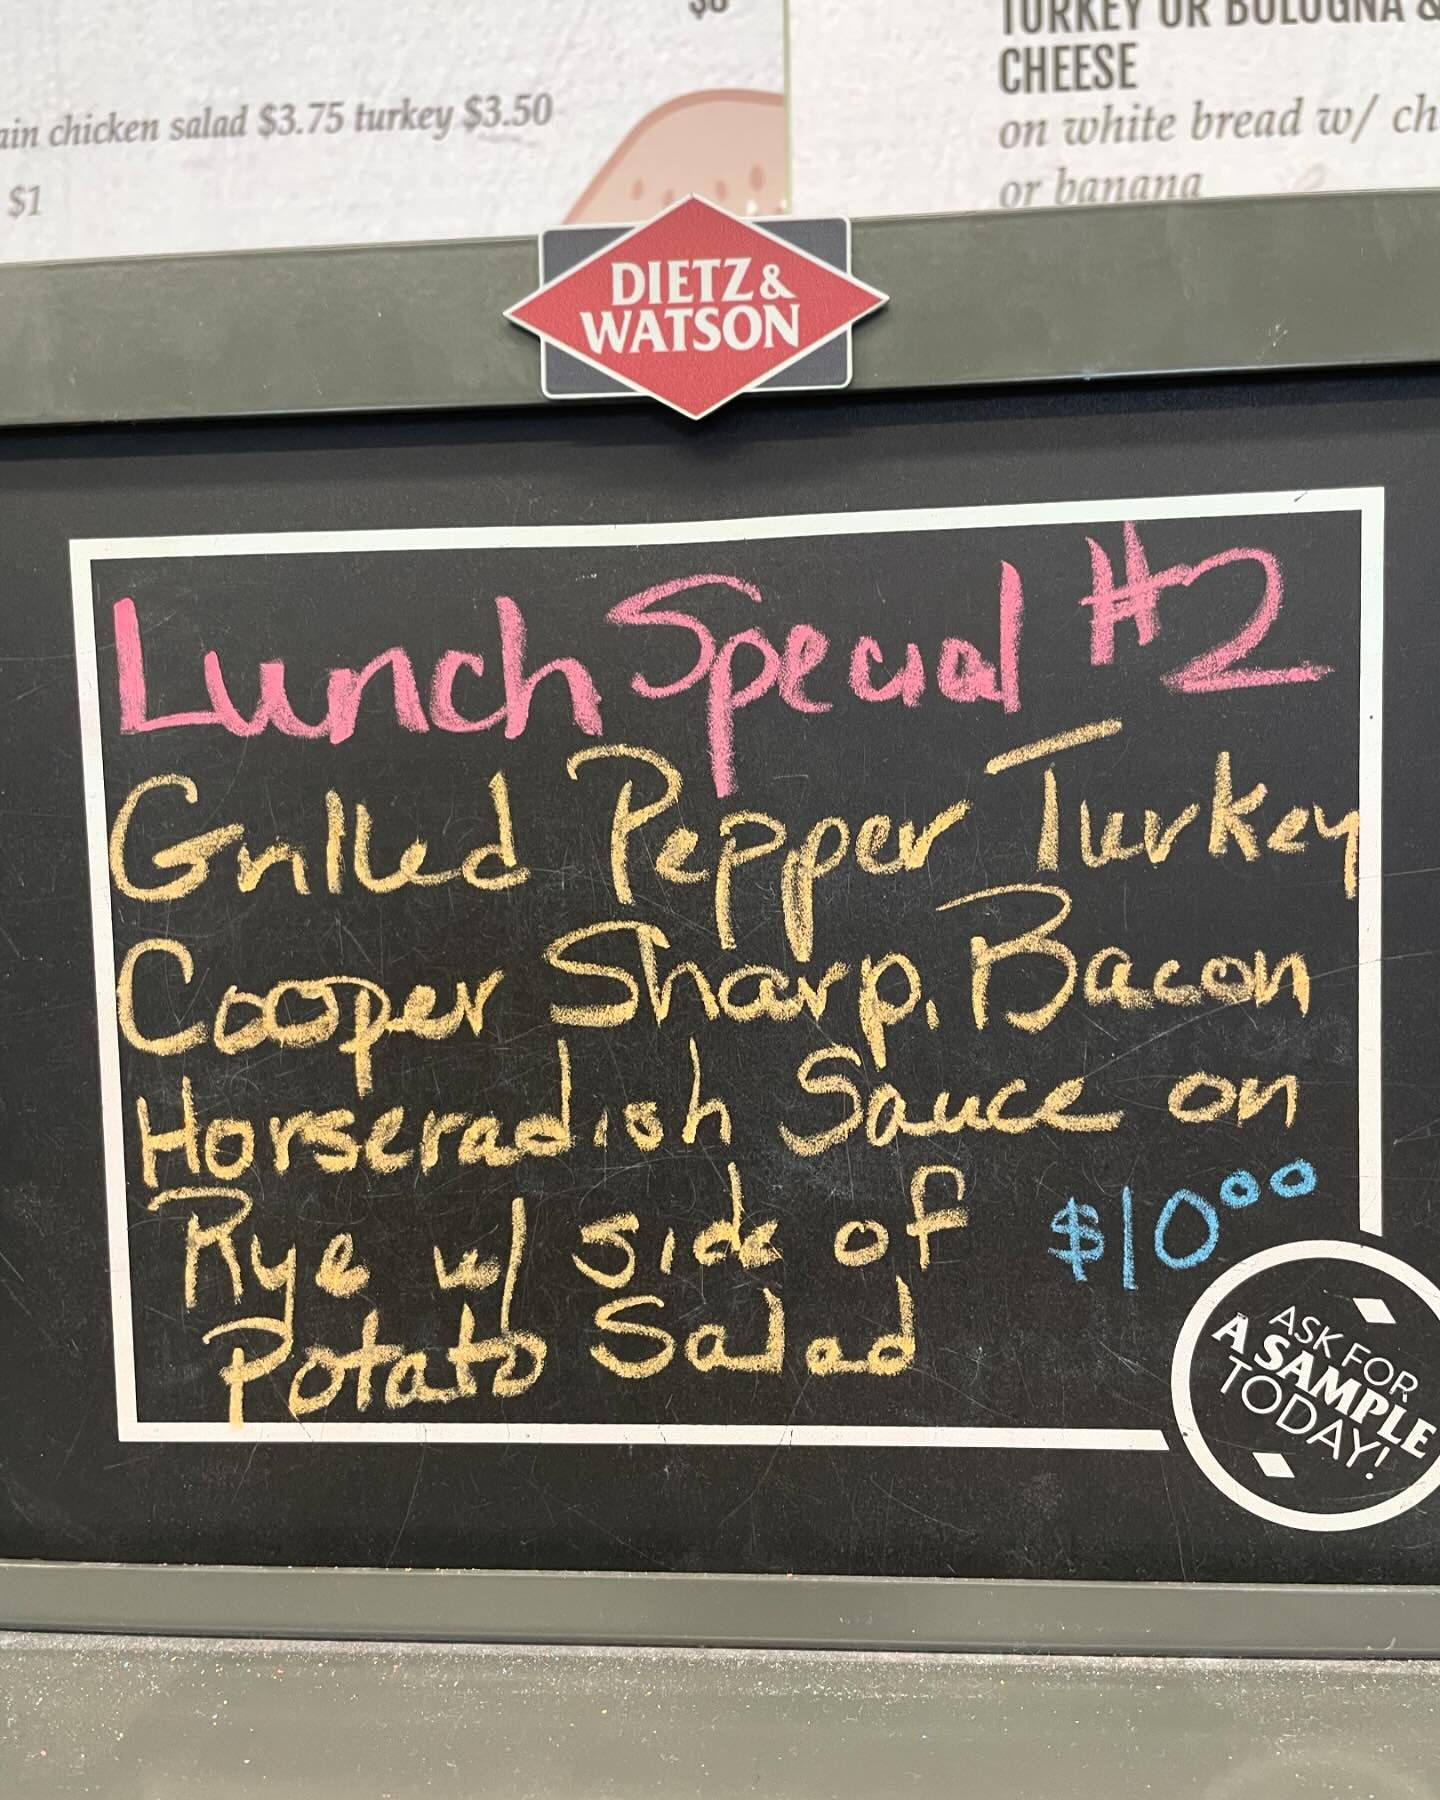 $8
TURKEY OR BOLOGNA &
CHEESE
chicken salad $3.75 turkey $3.50
on white bread w/
$1
or banana
DIETZ &
WATSON
Lunch Special #2
Grilled Pepper Turkey
Cooper Sharp, Bacon
Horseradish Sauce on
Rye w/ side of $10⁰⁰
Potato Salad
ASK FOR
A SAMPLE
TODAY!